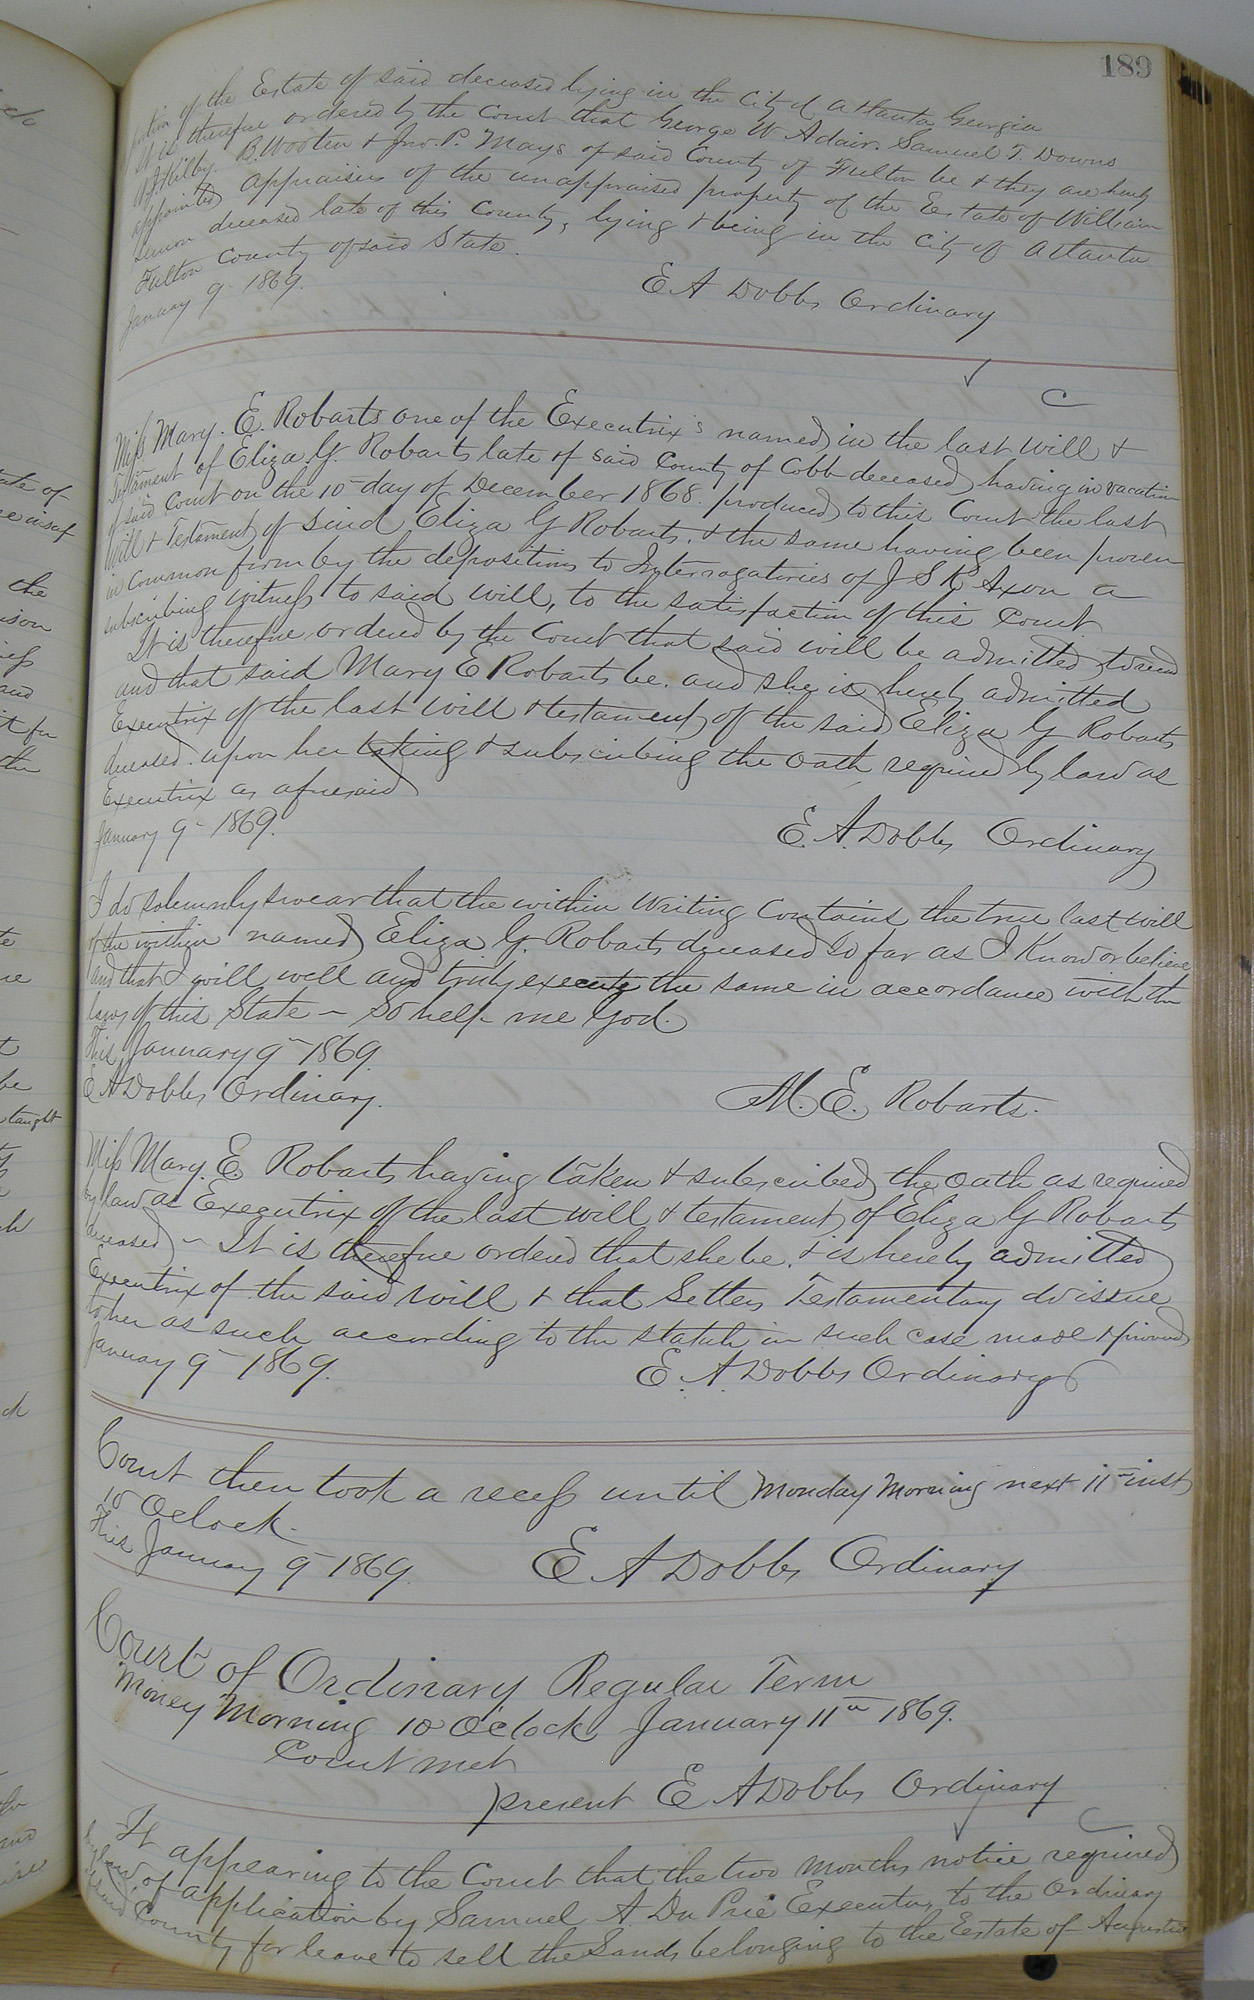 189
portion of the Estate of said deceased lying in the City of Atlanta Georgia
It is therefore ordered by the Court that George W Adair. Samuel T. Downs
Kilby. B. Wooten & Jno. P. Mays of said County of Fulton be & they are hereby
appointed appraisers of the unappraised property of the Estate of William
deceased late of this County, lying & being in the City of Atlanta
Fulton County of said State.
January 9 1869.
E A Dobbs Ordinary
C
Miss Mary. E. Robarts one of the Executrix's named in the last will &
Testament of Eliza G. Robarts late of said County of Cobb deceased, having in vacation
of said Court on the 10 day of December 1868. produced to this Court the last
Will & Testament of said Eliza G Robarts. & the same having been proven
in common form by the depositions to Interrogatories of J S K Axon a
subscribing witness to said will, to the satisfaction of this Court
It is therefore ordered by the Court that said will be admitted to record
and that said Mary E Robarts be. and she is hereby admitted
Executrix of the last will & testament of the said Eliza G Robarts
deceased. upon her taking & subscribing the oath required by law as
Executrix as aforesaid
January 9 - 1869.
E. A. Dobbs Ordinary
I do solemnly swear that the within writing contains the true last will
of the within named Eliza G. Robarts deceased so far as I Know or believe
and that I will well and truly execute the same in accordance with the
laws of this State - So help me God.
This January 9 - 1869.
E A Dobbs Ordinary.
M. E. Robarts.
Miss Mary. E Robarts having taken & subscribed the oath as required
by law as Executrix of the last will & testament of Eliza G Robarts
deceased - It is therefore ordered that she be. & is hereby admitted
Executrix of the said will & that Letters Testamentary do issue
to her as such according to the statute in such case made & provided
January 9 - 1869.
E. A. Dobbs Ordinary
Court then took a recess until Monday Morning next 11 inst
10 Oclock.
This January 9 - 1869.
E A Dobbs Ordinary
Court of Ordinary Regular Term
Money Morning 10 O'clock January 11th 1869.
Court met
present E A Dobbs Ordinary
C
It appearing to the Court that the two months notice required
by law. of application by Samuel A. Du Prie Executor, to the Ordinary
of said County for leave to sell the Lands belonging to the Estate of